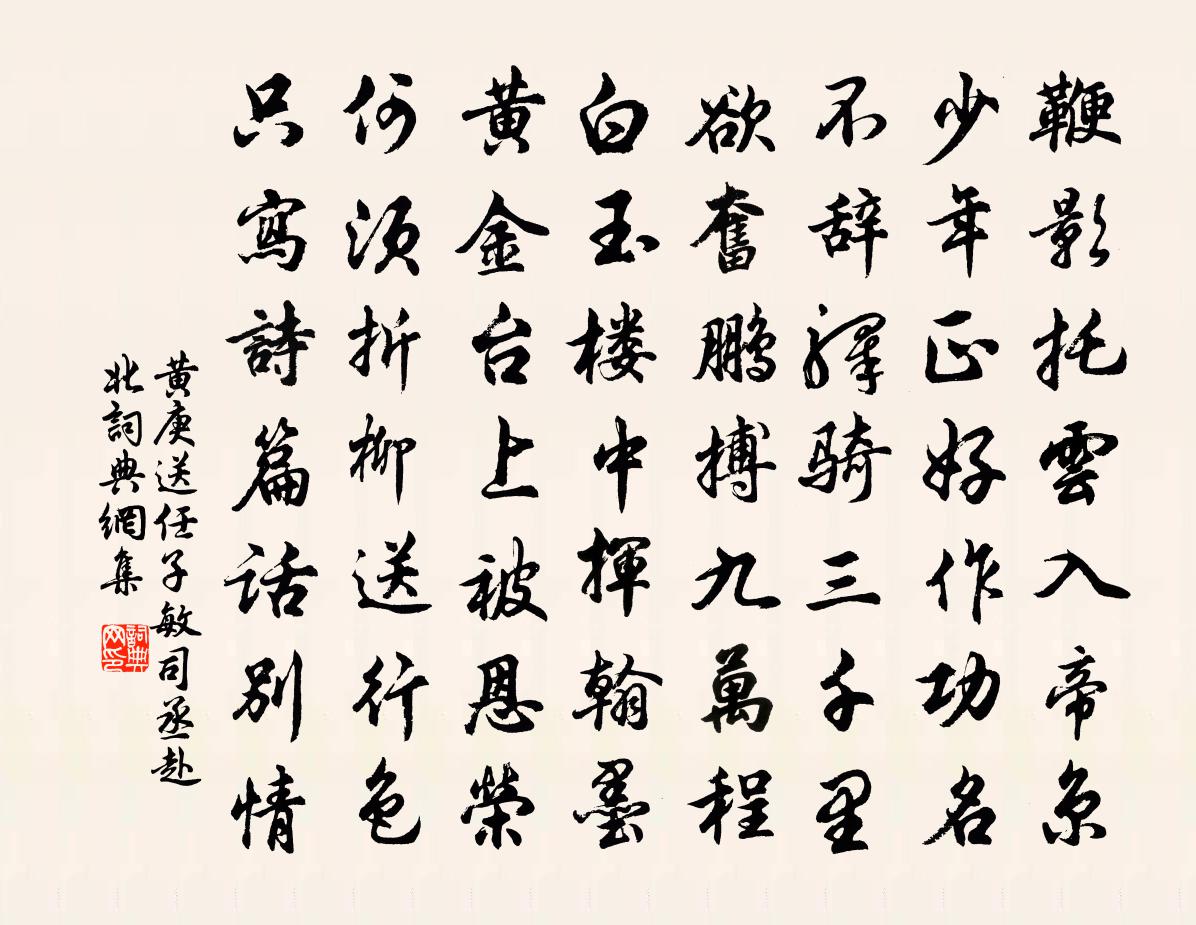 鞭影托雲入帝京
少年正好作功名
不辞驛骑三千里
欲奮鹏搏九萬程
白玉楼中揮翰墨
黄金台上被恩榮
何须折柳送行色
只寫詩篇话别情
黄庚送任子敏司丞赴
北詞典網集
詞典网印